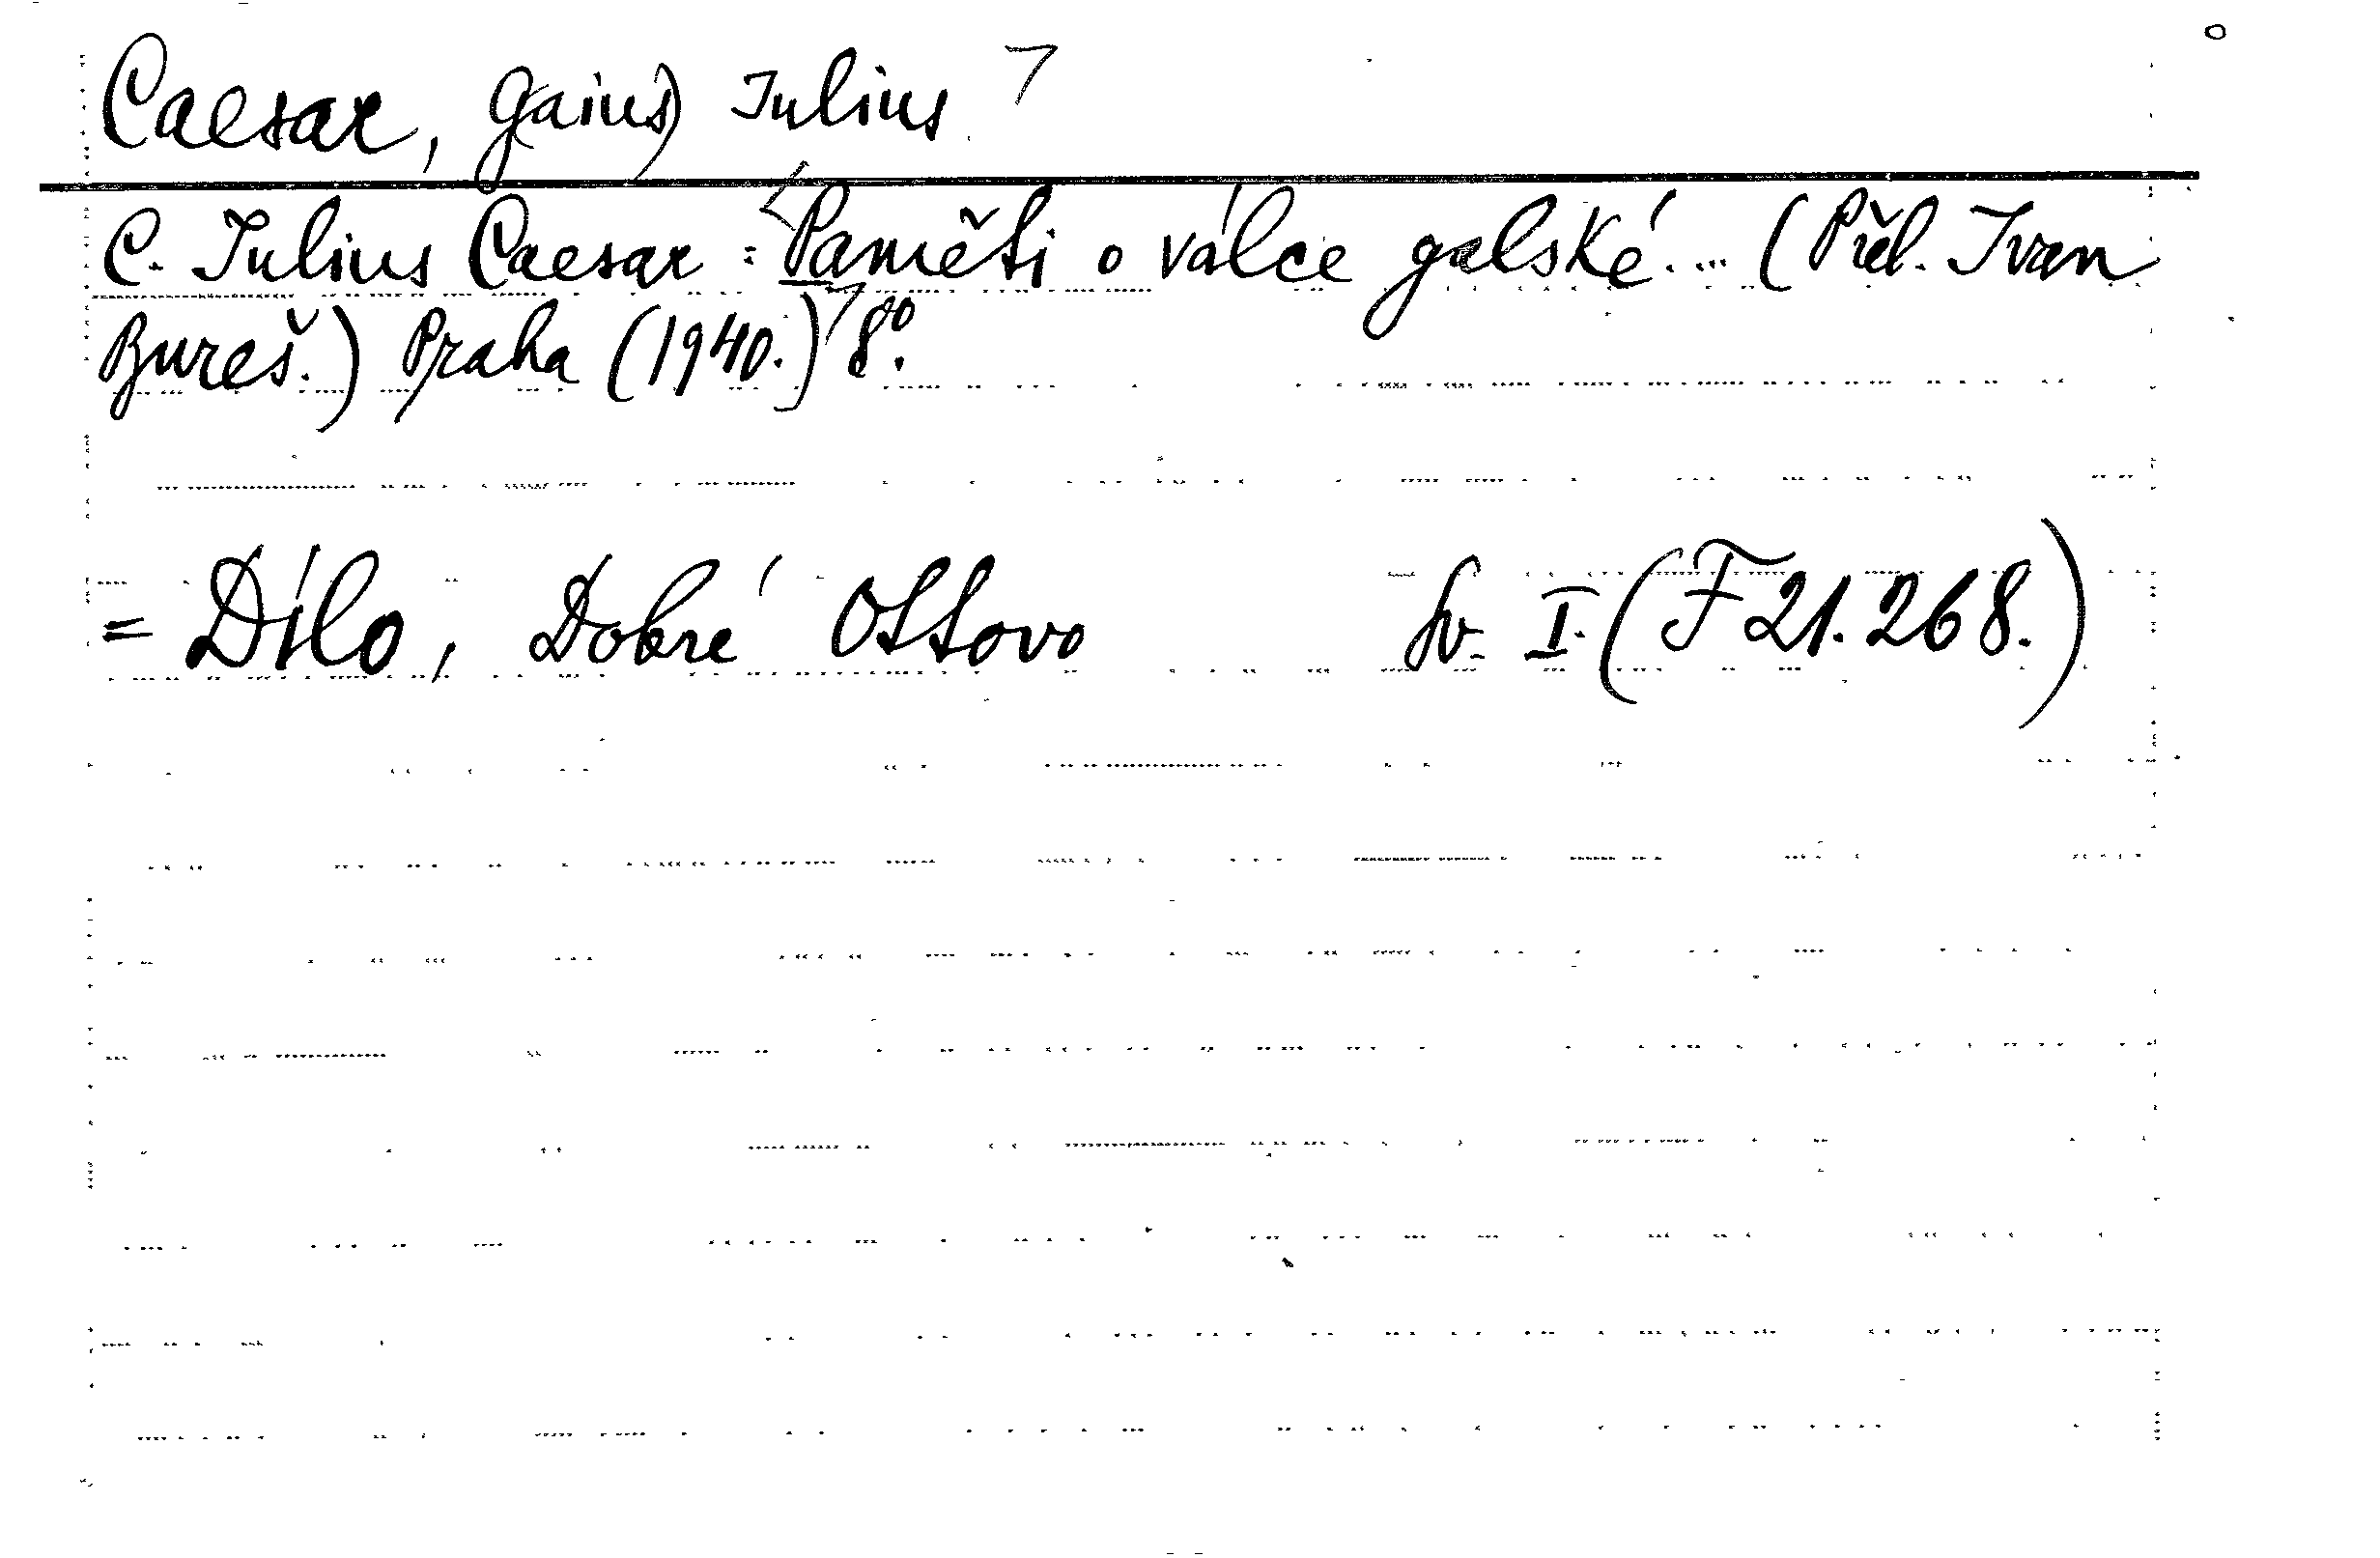 Caesar, Gaius) Iulius
C. Iulius Caesar: Paměti o válce galské... (Přel. Ivan
Bureš.) Praha (1940.) 8°.
= Dílo, Dobré Ottovo sv. I. (F 21.268.)